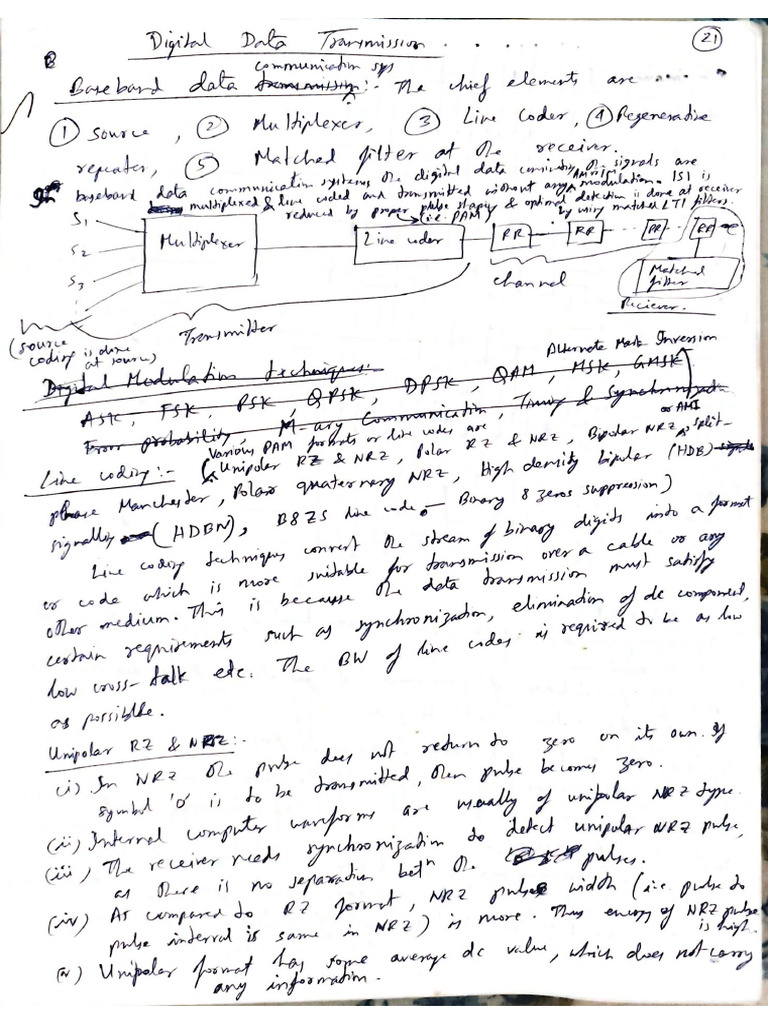 Digital Data Transmission . . . . .
21
communication sys
Baseband data transmission :- The chief elements are ....
① Source, ② Multiplexer, ③ Line Coder, ④ Regenerative
repeater, ⑤ Matched filter at the receiver.
In baseband data communication systems the digital data signals are
multiplexed & line coded and transmitted without any modulation. ISI is
reduced by proper pulse shaping & optimal detection is done at receiver
(i.e. PAM) by using matched LTI filters.
S1
S2
S3
Multiplexer
Line coder
RR
RR
RR
RR
channel
Matched filter
Reciever.
Transmitter
(source
coding is done
at source)
Digital Modulation techniques:-
Alternate Mark Inversion
ASK, FSK, PSK, QPSK, DPSK, QAM, MSK, GMSK
Error probability, M-ary Communication, Timing & Synchronizat
Various PAM formats or line codes are or AMI
Line coding:- (Unipolar RZ & NRZ, Polar RZ & NRZ, Bipolar NRZ, split-
phase Manchester, Polar quaternary NRZ, High density bipolar (HDB)
signalling (HDBN), B8ZS line code - Binary 8 zeros suppression)
Line coding techniques convert the stream of binary digits into a format
or code which is more suitable for transmission over a cable or any
other medium. This is because the data transmission must satisfy
certain requirements such as synchronization, elimination of dc component,
low cross-talk etc. The BW of line codes is required to be as low
as possiblle.
Unipolar RZ & NRZ:-
(i) In NRZ the pulse does not return to zero on its own. If
symbol '0' is to be transmitted, then pulse becomes zero.
(ii) Internal computer waveforms are usually of unipolar NRZ type.
(iii) The receiver needs synchronization to detect unipolar NRZ pulse,
as there is no separation betn the pulses.
(iv) As compared to RZ format, NRZ pulse width (i.e. pulse to
pulse interval is same in NRZ) is more. Thus energy of NRZ pulse
is high.
(v) Unipolar format has some average dc value, which does not carry
any information.